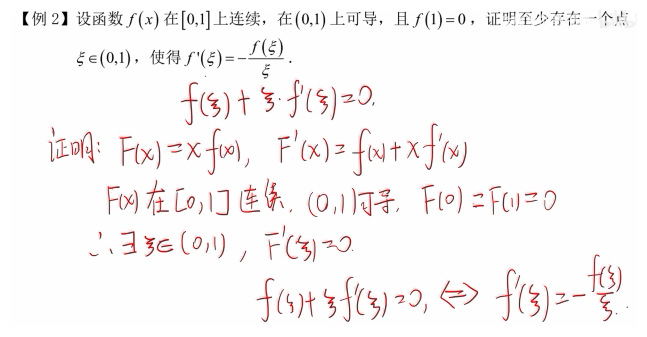 【例2】设函数 f(x) 在[0,1]上连续，在(0,1)上可导，且 f(1)=0，证明至少存在一个点
ξ∈(0,1)，使得 f'(ξ)=-f(ξ)/ξ.
f(ξ)+ξ·f'(ξ)=0.
证明: F(x)=xf(x), F'(x)=f(x)+xf'(x)
F(x)在[0,1]连续. (0,1)可导. F(0)=F(1)=0
∴∃ξ∈(0,1), F'(ξ)=0.
f(ξ)+ξf'(ξ)=0, ⇔ f'(ξ)=-f(ξ)/ξ.